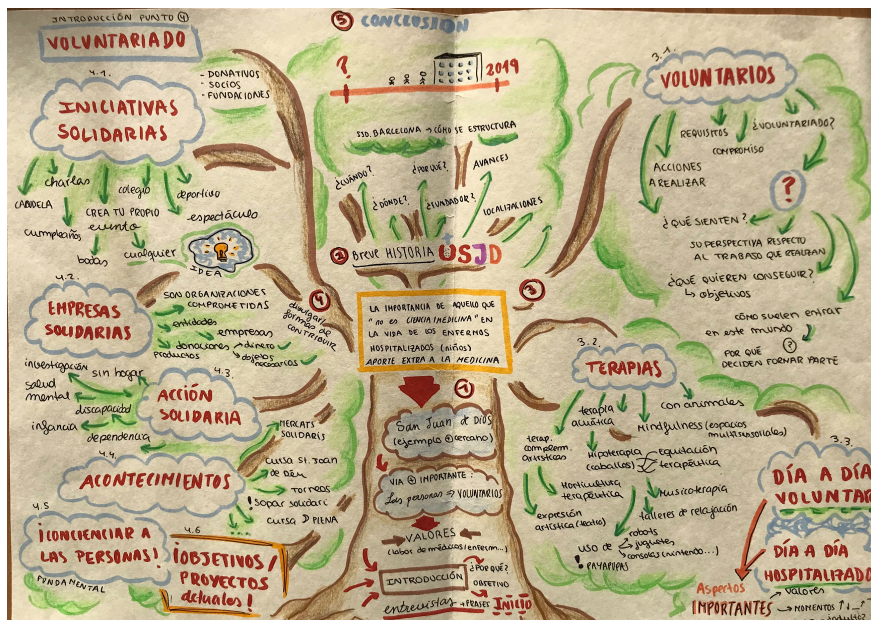 INTRODUCCIÓN PUNTO 4
VOLUNTARIADO
4.1.
INICIATIVAS
SOLIDARIAS
- DONATIVOS
- SOCIOS
- FUNDACIONES
charlas
colegio
deportivo
CREA TU PROPIO
evento
espectáculo
cumpleaños
bodas
cualquier
IDEA
4.2.
EMPRESAS
SOLIDARIAS
SON ORGANIZACIONES
COMPROMETIDAS
entidades
empresas
donaciones
dinero
productos
objetos
necesarios
divulgar
formas de
CONTRIBUIR
4.3.
ACCIÓN
SOLIDARIA
investigación
sin hogar
salud
mental
discapacidad
infancia
dependencia
4.4.
ACONTECIMIENTOS
MERCATS
SOLIDARIS
cursa St. Joan
de Déu
TORNEOS
! Sopar solidari
cursa D PLENA
...
4.5
¡CONCIENCIAR
A LAS PERSONAS!
FUNDAMENTAL
4.6
¡OBJETIVOS/
PROYECTOS
actuales!
5 CONCLUSION
?
OK OK OK
2019
SJD. BARCELONA → CÓMO SE ESTRUCTURA
¿CUÁNDO?
¿DÓNDE?
¿PORQUÉ?
¿FUNDADOR?
AVANCES
LOCALIZACIONES
2 Breve HISTORIA SJD
4
3
LA IMPORTANCIA DE AQUELLO QUE
"no es CIENCIA/MEDICINA" EN
LA VIDA DE LOS ENFERMOS
HOSPITALIZADOS (niños)
APORTE EXTRA A LA MEDICINA
1
San Juan de Dios
(ejemplo + cercano)
VIA + IMPORTANTE:
Las personas → VOLUNTARIOS
VALORES
(labor de médicos/enferm...)
INTRODUCCIÓN
¿POR QUÉ?
OBJETIVO
entrevistas + FRASES INICIO
3.1.
VOLUNTARIOS
REQUISITOS
¿VOLUNTARIADO?
COMPROMISO
ACCIONES
A REALIZAR
?
¿QUÉ SIENTEN?
SU PERSPECTIVA RESPECTO
AL TRABAJO QUE REALIZAN
¿QUÉ QUIEREN CONSEGUIR?
↳ objetivos
CÓMO SUELEN entrar
en este mundo
?
POR QUÉ
DECIDEN FORMAR PARTE
3.2.
TERAPIAS
terapia
acuática
con animales
Mindfulness (espacios
multisensoriales)
terap.
complem.
artísticas
Hipoterapia
(caballos)
equitación
terapéutica
Horticultura
terapéutica
Musicoterapia
expresión
artística (teatro)
talleres de relajación
USO de
robots
juguetes
consolas (nintendo...)
! PAYAPUPAS
3.3.
DÍA A DÍA
DÍA A DÍA
HOSPITALIZADO
Aspectos
IMPORTANTES
valores
→ MOMENTOS ↑↓